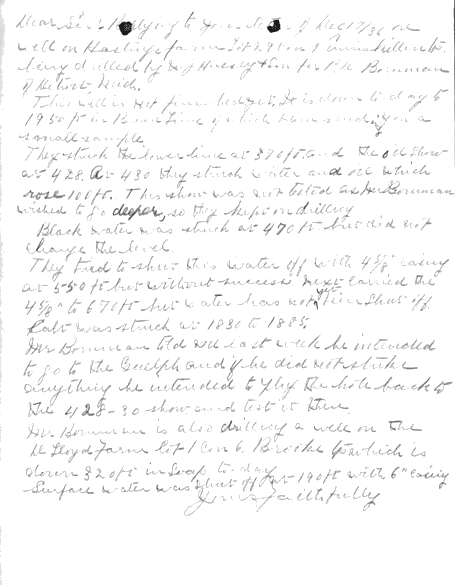 Dear Sir: Replying to your of Dec 17/36 re
well on Hastings farm Lot 29 Con 1 Enniskillen tp.
being drilled by Hussey & Son for Bowman
of Detroit, Mich.
This well is not finished yet, It is down to day to
1950 ft in Brown Lime of which I am sending you a
small sample
They struck the lower lime at 370 ft. and the oil show
at 428. At 430 they struck water and oil which
rose 100 ft. This show was not tested as Mr Bowman
wished to go deeper, so they kept on drilling
Black water was struck at 470 ft but did not
change the level.
They tried to shut this water off with 4 5/8" casing
at 550 ft but without success next carried the
4 5/8" to 670 ft but water has not yet been shut off.
Salt was struck at 1830 to 1885.
Mr Bowman told me last week he intended
to go to the Guelph and if he did not strike
anything he intended to plug the hole back to
the 428-30 show and test it then.
Mr Bowman is also drilling a well on the
Lloyd Farm Lot 1 Con 6. Brooke tp which is
down 320 ft in Soap to-day
Surface water was shut off at 190 ft with 6" casing
Yours faithfully